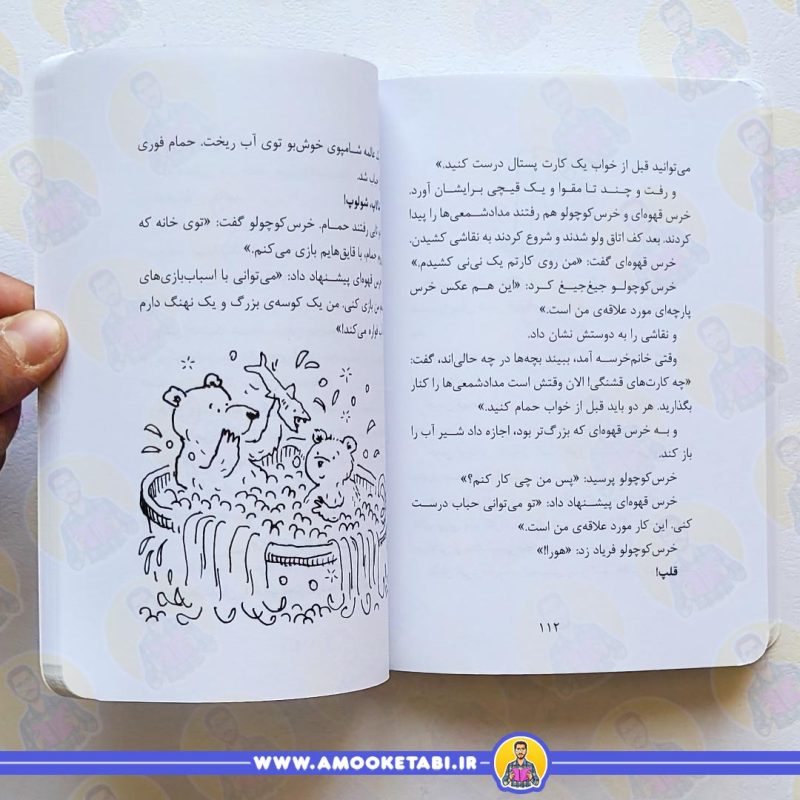 می‌توانید قبل از خواب یک کارت پستال درست کنید.»
و رفت و چند تا مقوا و یک قیچی برایشان آورد.
خرس قهوه‌ای و خرس‌کوچولو هم رفتند مدادشمعی‌ها را پیدا
کردند. بعد کف اتاق ولو شدند و شروع کردند به نقاشی کشیدن.
خرس قهوه‌ای گفت: «من روی کارتم یک نی‌نی کشیدم.»
خرس‌کوچولو جیغ‌جیغ کرد: «این هم عکس خرس
پارچه‌ای مورد علاقه‌ی من است.»
و نقاشی را به دوستش نشان داد.
وقتی خانم‌خرسه آمد، ببیند بچه‌ها در چه حالی‌اند، گفت:
«چه کارت‌های قشنگی! الان وقتش است مدادشمعی‌ها را کنار
بگذارید. هر دو باید قبل از خواب حمام کنید.»
و به خرس قهوه‌ای که بزرگ‌تر بود، اجازه داد شیر آب را
باز کند.
خرس‌کوچولو پرسید: «پس من چی کار کنم؟»
خرس قهوه‌ای پیشنهاد داد: «تو می‌توانی حباب درست
کنی. این کار مورد علاقه‌ی من است.»
خرس‌کوچولو فریاد زد: «هورا!»
قلپ!
۱۱۲
عالمه شامپوی خوش‌بو توی آب ریخت. حمام فوری
حباب شد.
شولوپ!
رفتند حمام. خرس‌کوچولو گفت: «توی خانه که
حمام، با قایق‌هایم بازی می‌کنم.»
قهوه‌ای پیشنهاد داد: «می‌توانی با اسباب‌بازی‌های
بازی کنی. من یک کوسه‌ی بزرگ و یک نهنگ دارم
فواره می‌کند!»
WWW.AMOOKETABI.IR